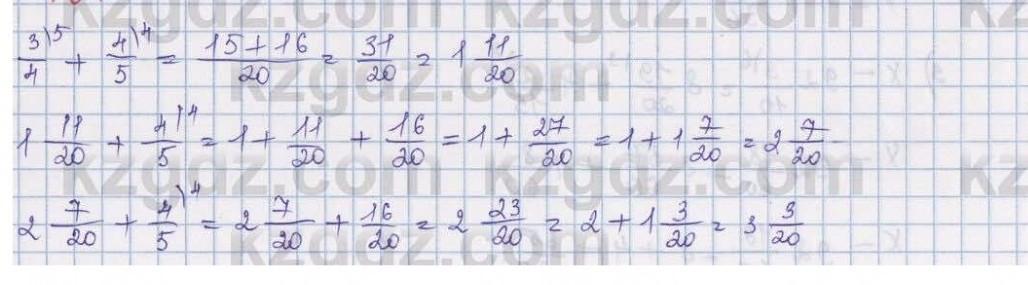 kzgdz.com kzgdz.com kz
3/4\5 + 4/5\4 = 15+16/20 = 31/20 = 1 11/20
1 11/20 + 4/5\4 = 1 + 11/20 + 16/20 = 1 + 27/20 = 1 + 1 7/20 = 2 7/20
kzgdz.com kzgdz.com kz
2 7/20 + 4/5\4 = 2 7/20 + 16/20 = 2 23/20 = 2 + 1 3/20 = 3 3/20